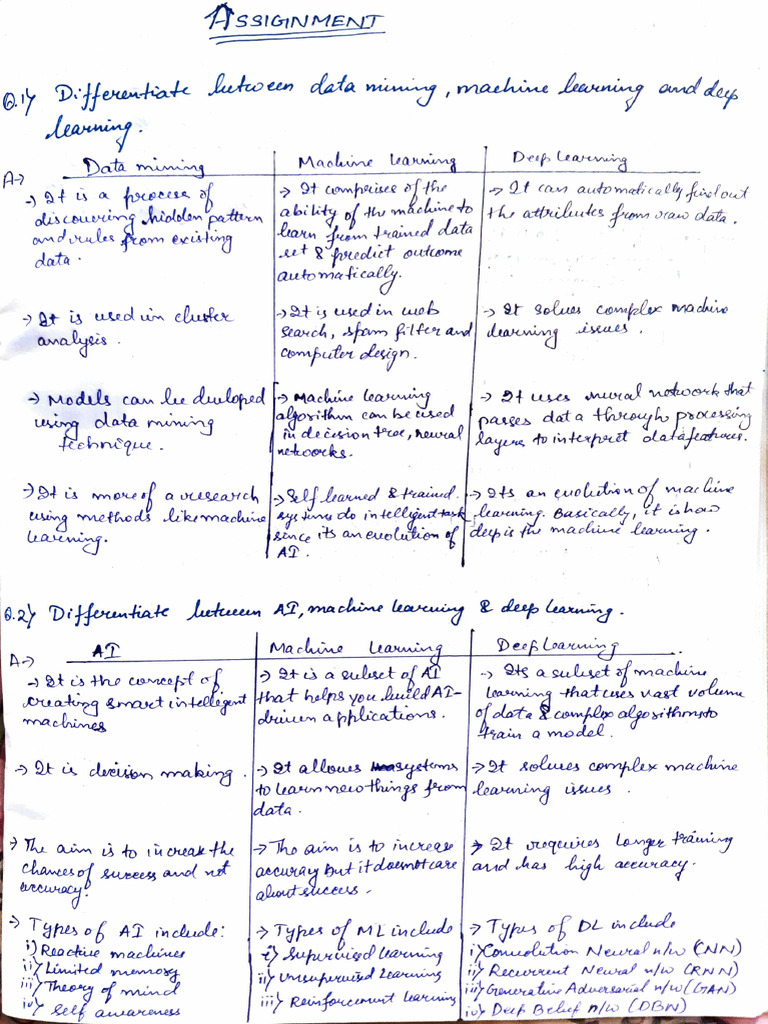 ASSIGNMENT
Q.1) Differentiate between data mining, machine learning and deep
learning.
A→
Data mining
→ It is a process of
discovering hidden pattern
and rules from existing
data.
→ It is used in cluster
analysis.
→ Models can be developed
using data mining
technique.
→ It is more of a research
using methods like machine
learning.
Machine learning
→ It comprises of the
ability of the machine to
learn from trained data
set & predict outcome
automatically.
→ It is used in web
search, spam filter and
computer design.
→ Machine learning
algorithm can be used
in decision tree, neural
networks.
→ Self learned & trained
systems do intelligent task
since its an evolution of
AI.
Deep learning
→ It can automatically find out
the attributes from raw data.
→ It solves complex machine
learning issues.
→ It uses neural network that
passes data through processing
layers to interpret data features.
→ Its an evolution of machine
learning. Basically, it is how
deep is the machine learning.
Q.2) Differentiate between AI, machine learning & deep learning.
A→
AI
→ It is the concept of
creating smart intelligent
machines
→ It is decision making.
→ The aim is to increase the
chances of success and not
accuracy.
→ Types of AI include:
i) Reactive machines
ii) Limited memory
iii) Theory of mind
iv) Self awareness
Machine learning
→ It is a subset of AI
that helps you build AI-
driven applications.
→ It allows systems
to learn new things from
data.
→ The aim is to increase
accuracy but it does not care
about success.
→ Types of ML include
i) Supervised learning
ii) Unsupervised Learning
iii) Reinforcement learning
Deep learning
→ Its a subset of machine
learning that uses vast volume
of data & complex algorithms to
train a model.
→ It solves complex machine
learning issues.
→ It requires longer training
and has high accuracy.
→ Types of DL include
i) Convolution Neural n/w (CNN)
ii) Recurrent Neural n/w (RNN)
iii) Generative Adversarial n/w (GAN)
iv) Deep Belief n/w (DBN)